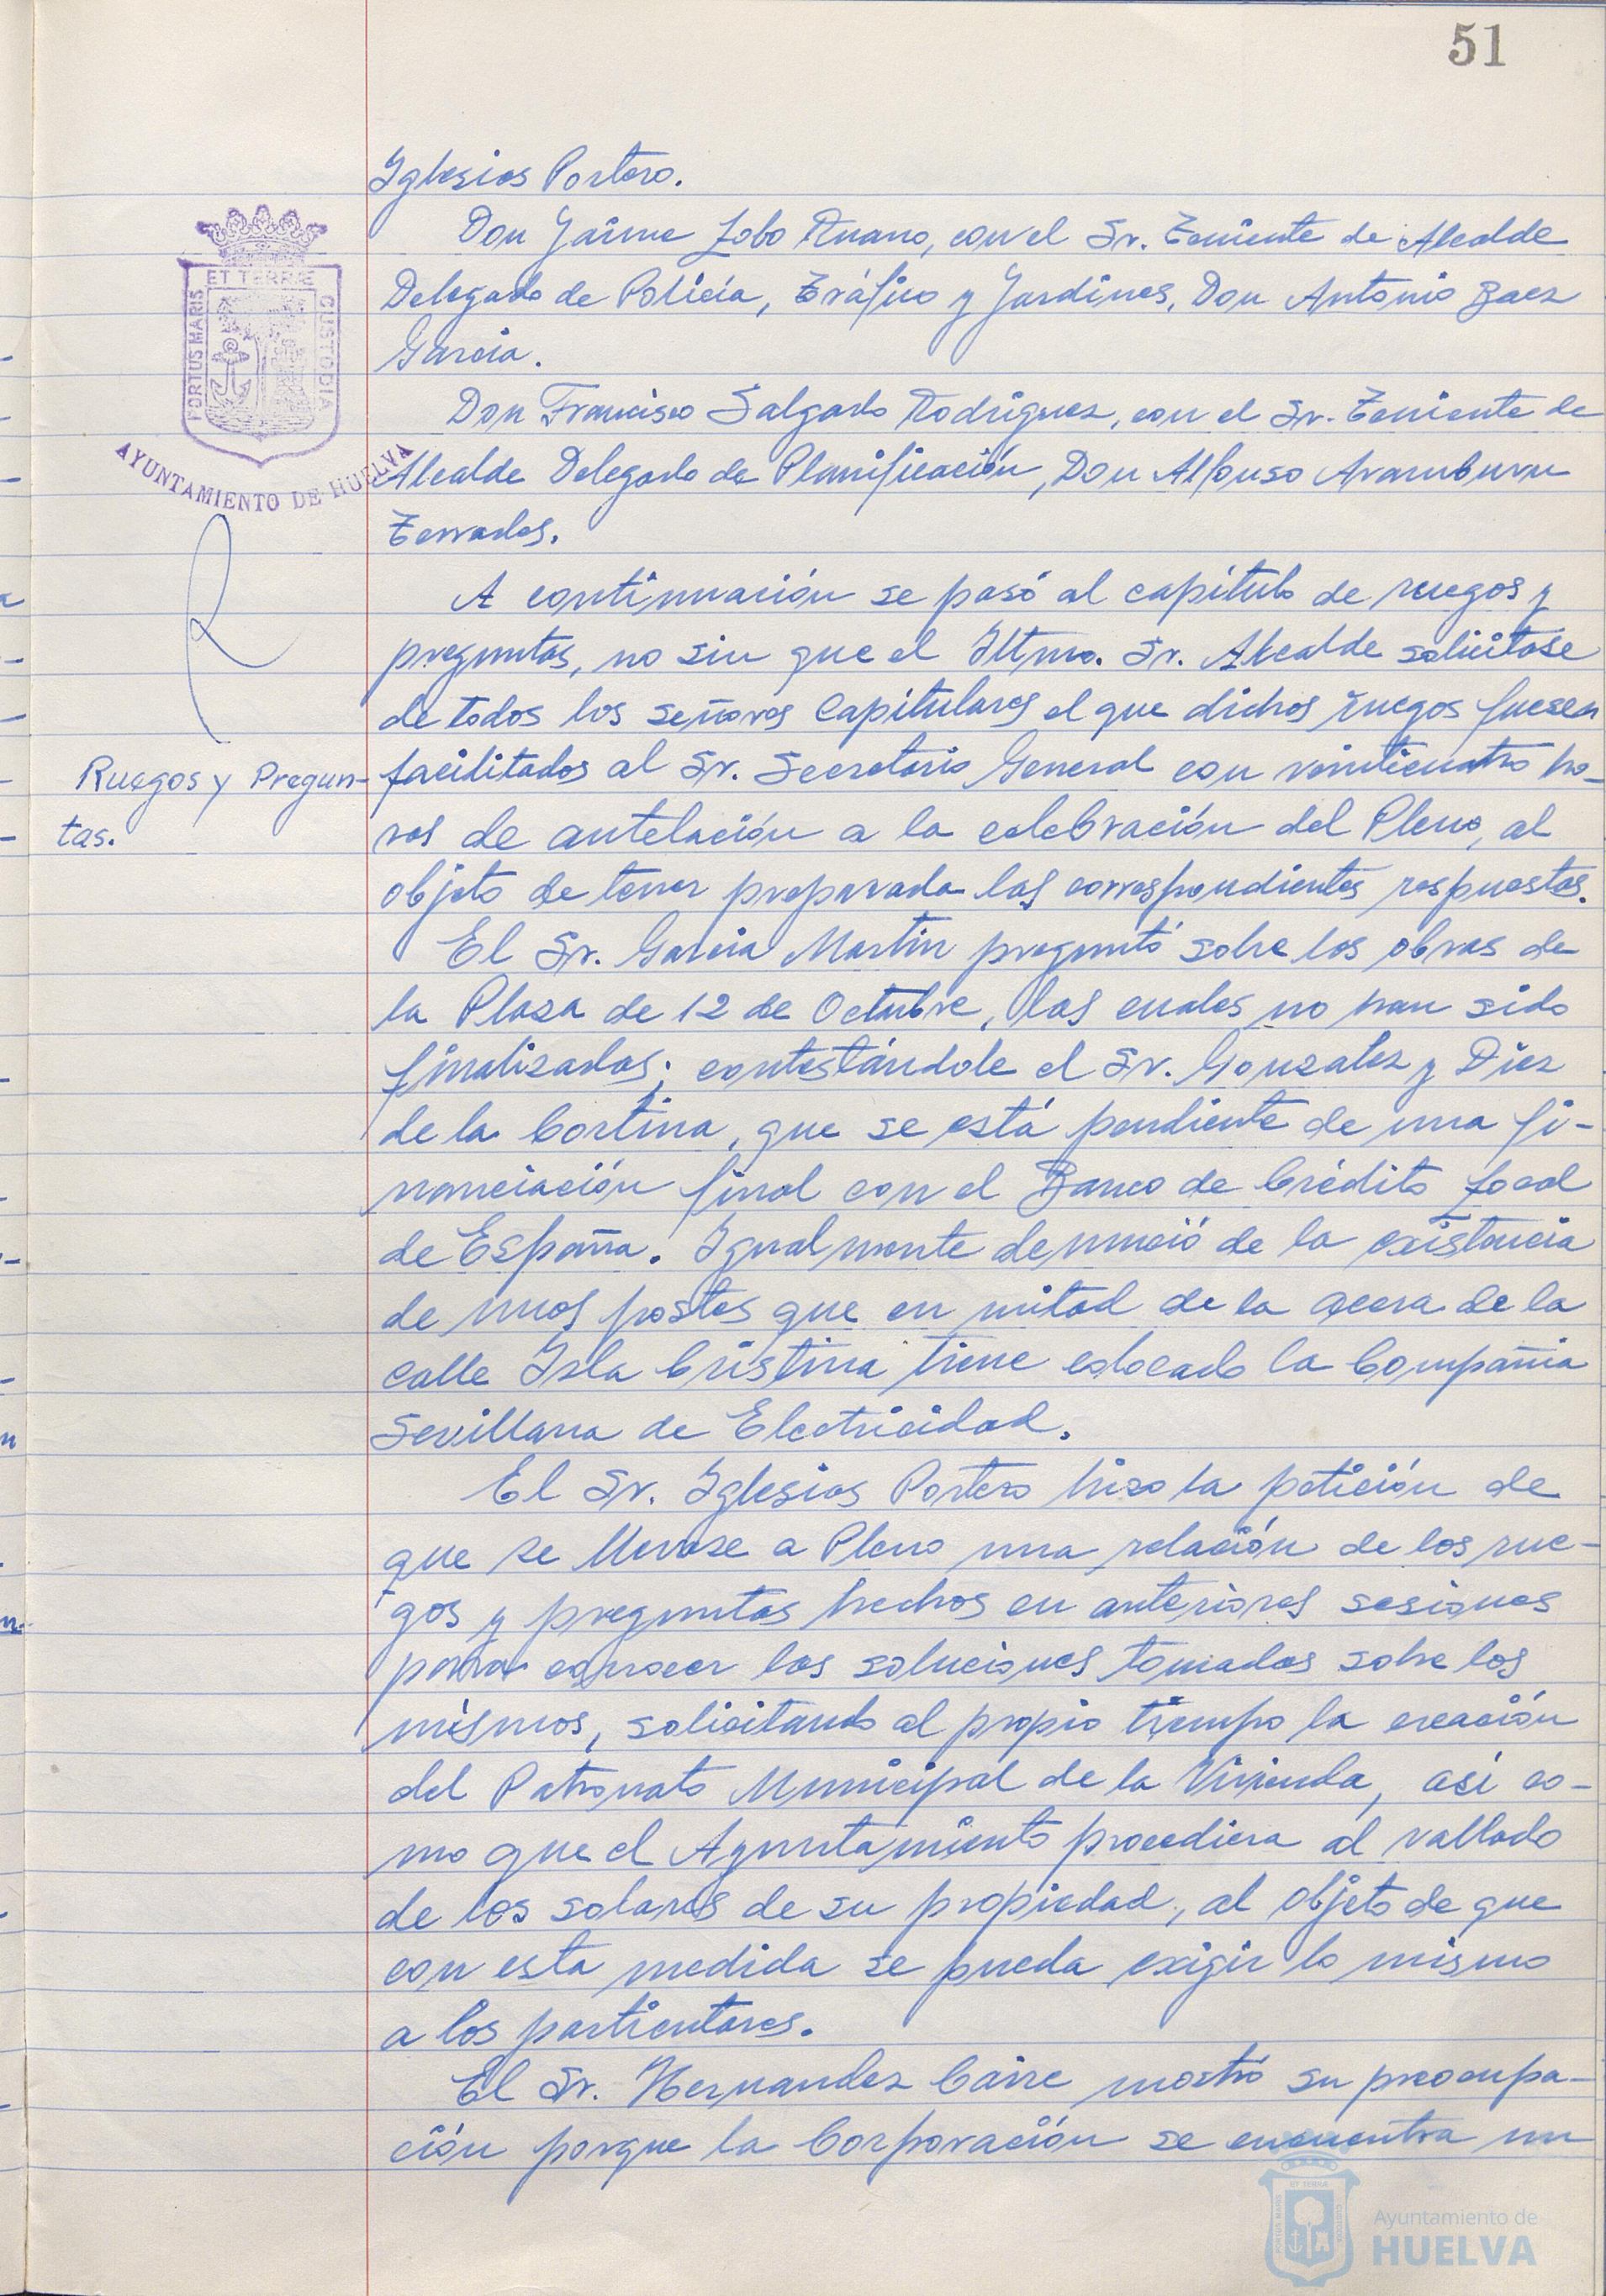 51
Iglesias Portero.
Don Jaime Lobo Ruano, con el Sr. Teniente de Alcalde
Delegado de Policía, Tráfico y Jardines, Don Antonio Baez
Garcia.
Don Francisco Salgado Rodriguez, con el Sr. Teniente de
Alcalde Delegado de Planificación, Don Alfonso Aramburu
Terrades.
A continuación se pasó al capítulo de ruegos y
preguntas, no sin que el Iltmo. Sr. Alcalde solicitase
de todos los señores Capitulares el que dichos ruegos fuesen
facilitados al Sr. Secretario General con veinticuatro ho-
ras de antelación a la celebración del Pleno, al
objeto de tener preparada las correspondientes respuestas.
Ruegos y Pregun-
tas.
El Sr. Garcia Martin preguntó sobre las obras de
la Plaza de 12 de Octubre, las cuales no han sido
finalizadas; contestándole el Sr. Gonzalez y Diez
de la Cortina, que se está pendiente de una fi-
nanciación final con el Banco de Crédito Local
de España. Igualmente denunció de la existencia
de unos postes que en mitad de la acera de la
calle Isla Cristina tiene colocado la Compañia
Sevillana de Electricidad.
El Sr. Iglesias Portero hizo la petición de
que se llevase a Pleno una relación de los rue-
gos y preguntas hechos en anteriores sesiones
para conocer las soluciones tomadas sobre los
mismos, solicitando al propio tiempo la creación
del Patronato Municipal de la Vivienda, así co-
mo que el Ayuntamiento procediera al vallado
de los solares de su propiedad, al objeto de que
con esta medida se pueda exigir lo mismo
a los particulares.
El Sr. Hernandez Caire mostró su preocupa-
ción porque la Corporación se encuentra un
PORTUS MARIS ET TERRÆ CUSTODIA
AYUNTAMIENTO DE HUELVA
Ayuntamiento de
HUELVA